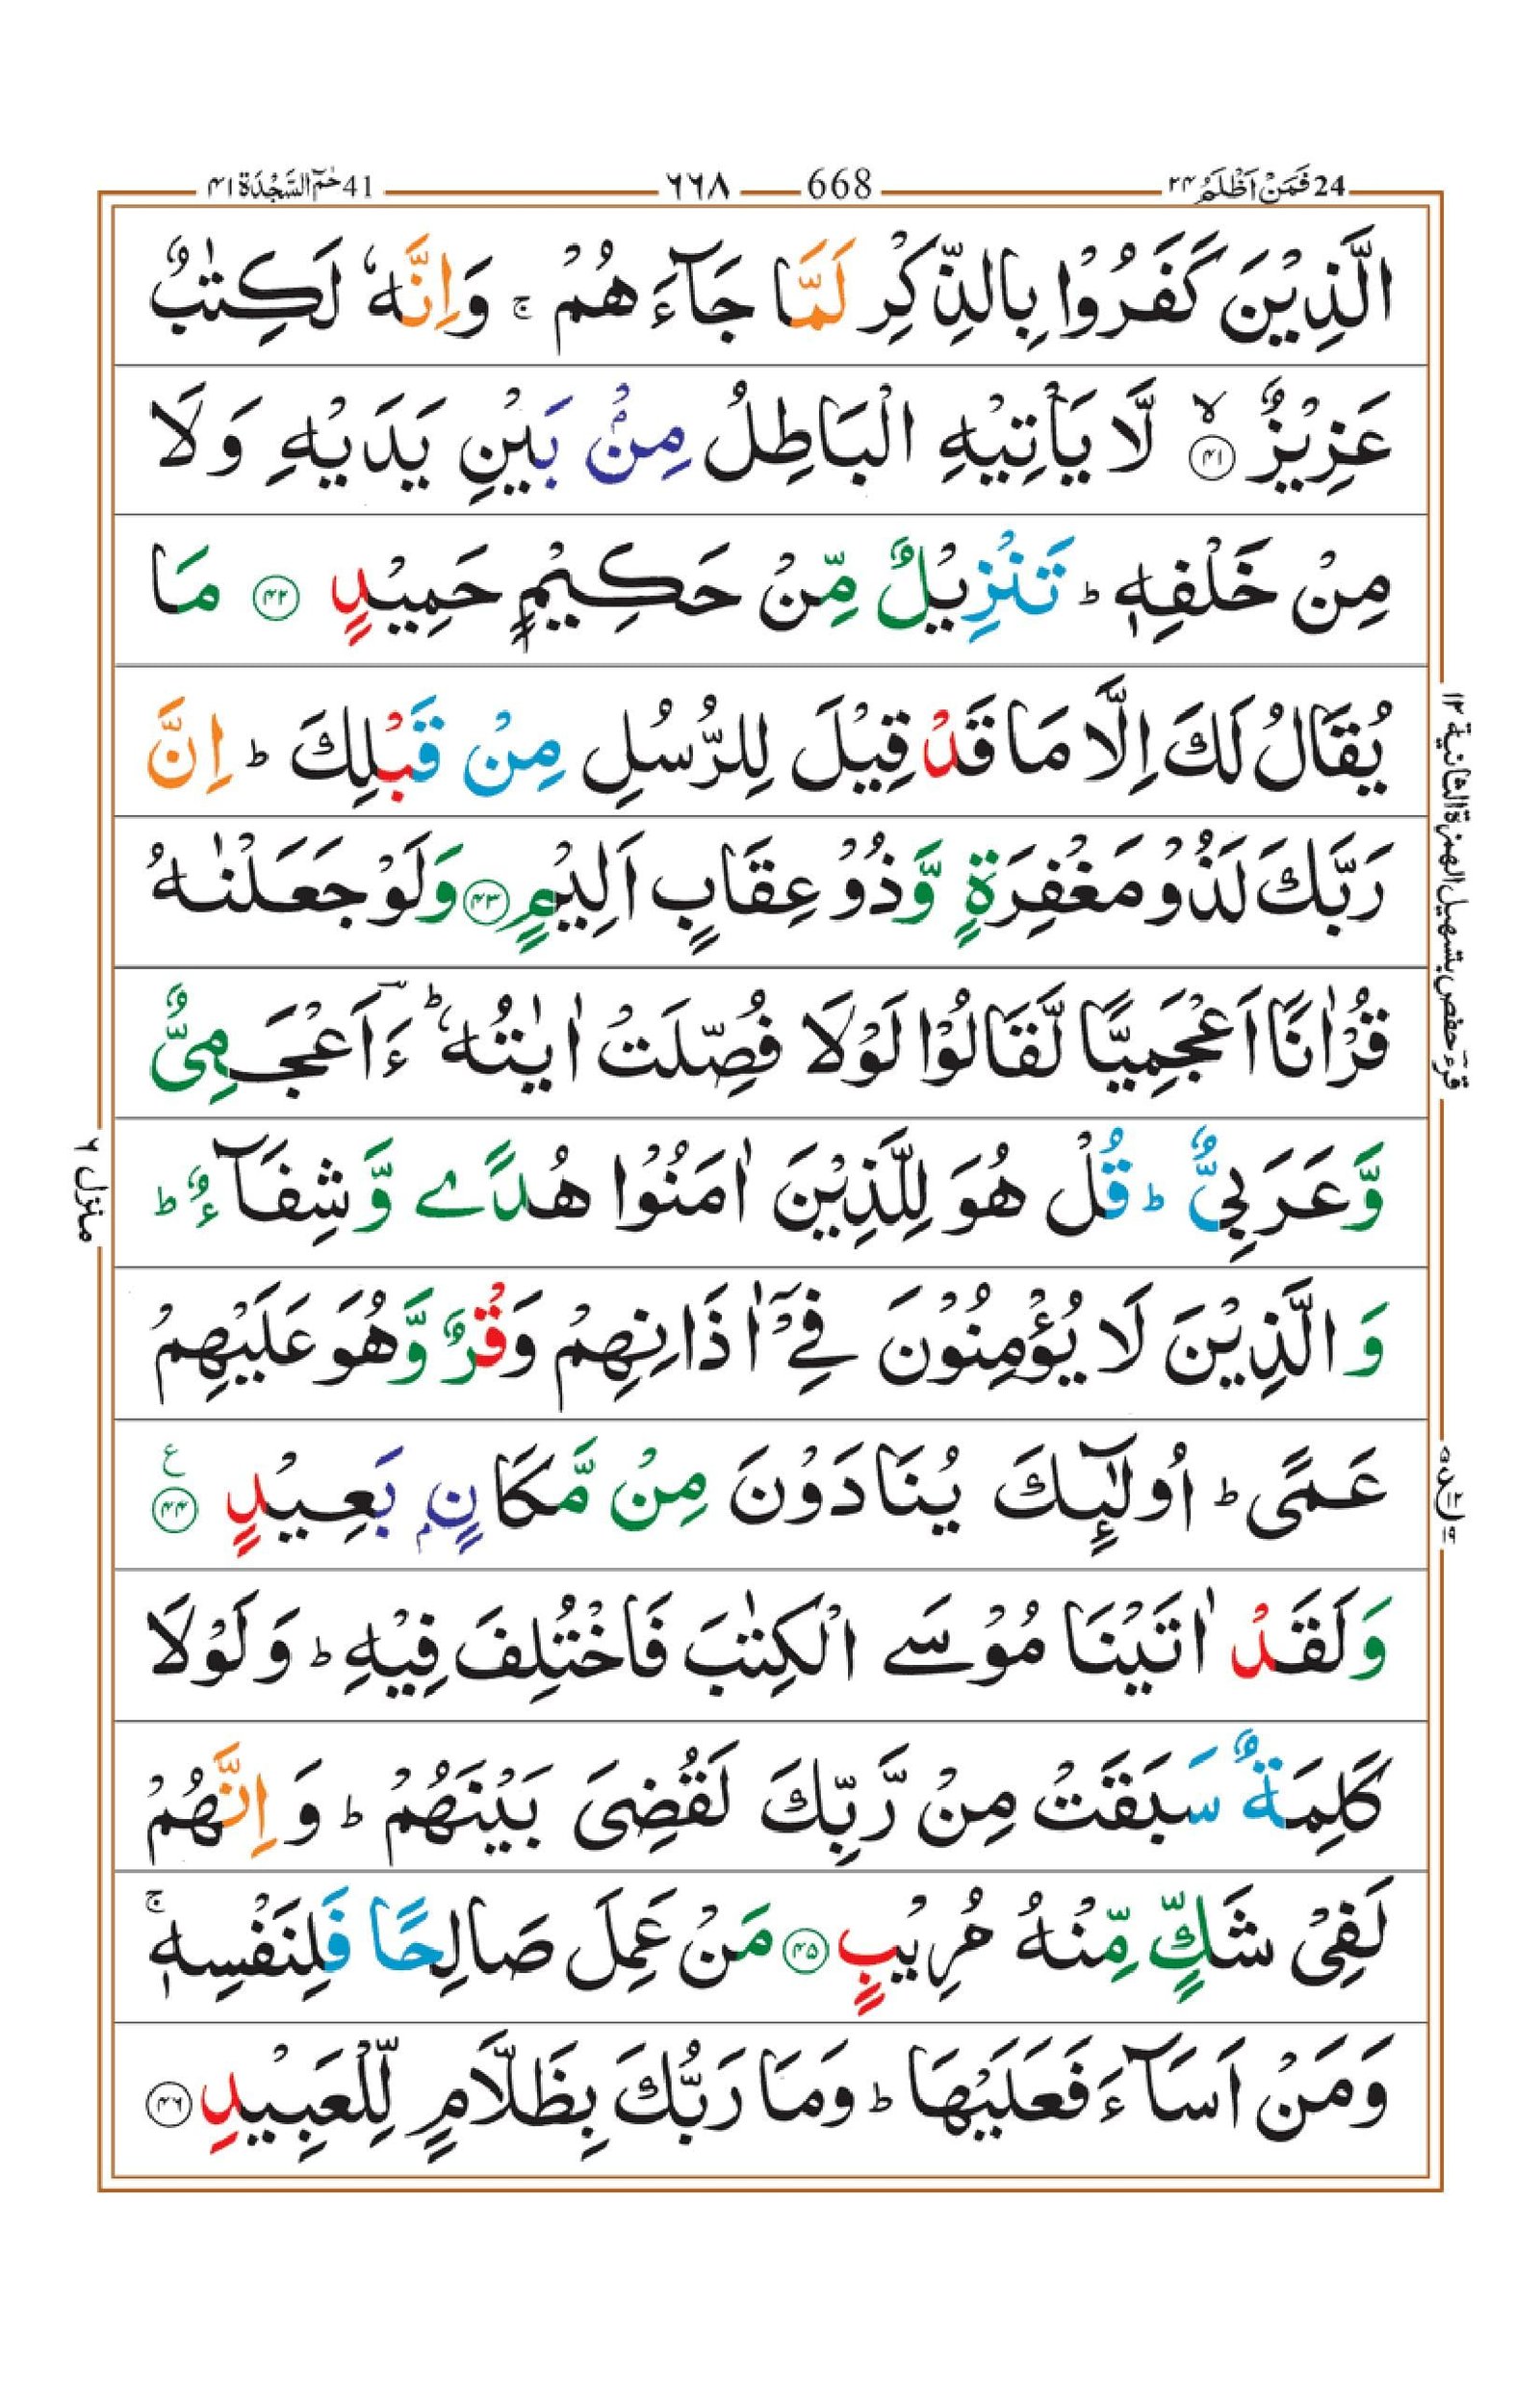 24 فَمَنْ اَظْلَمُ ۲۴
668 ٦٦٨
41 حٰمٓ السَّجْدَة ۴۱
الَّذِيْنَ كَفَرُوْا بِالذِّكْرِ لَمَّا جَآءَهُمْ ۚ وَاِنَّهٗ لَكِتٰبٌ
عَزِيْزٌ ۙ﴿۴۱﴾ لَّا يَاْتِيْهِ الْبَاطِلُ مِنْۢ بَيْنِ يَدَيْهِ وَلَا
مِنْ خَلْفِهٖ ؕ تَنْزِيْلٌ مِّنْ حَكِيْمٍ حَمِيْدٍ ﴿۴۲﴾ مَا
يُقَالُ لَكَ اِلَّا مَا قَدْ قِيْلَ لِلرُّسُلِ مِنْ قَبْلِكَ ؕ اِنَّ
رَبَّكَ لَذُوْ مَغْفِرَةٍ وَّذُوْ عِقَابٍ اَلِيْمٍ ﴿۴۳﴾ وَلَوْ جَعَلْنٰهُ
قُرْاٰنًا اَعْجَمِيًّا لَّقَالُوْا لَوْلَا فُصِّلَتْ اٰيٰتُهٗ ؕ ءَاَعْجَمِىٌّ
وَّعَرَبِىٌّ ؕ قُلْ هُوَ لِلَّذِيْنَ اٰمَنُوْا هُدًے وَّشِفَآءٌ ؕ
وَ الَّذِيْنَ لَا يُؤْمِنُوْنَ فِىْۤ اٰذَانِهِمْ وَقْرٌ وَّهُوَ عَلَيْهِمْ
عَمًى ؕ اُولٰٓئِكَ يُنَادَوْنَ مِنْ مَّكَانٍۢ بَعِيْدٍ ﴿۴۴﴾ ع
وَلَقَدْ اٰتَيْنَا مُوْسَے الْكِتٰبَ فَاخْتُلِفَ فِيْهِ ؕ وَلَوْلَا
كَلِمَةٌ سَبَقَتْ مِنْ رَّبِّكَ لَقُضِىَ بَيْنَهُمْ ؕ وَاِنَّهُمْ
لَفِىْ شَكٍّ مِّنْهُ مُرِيْبٍ ﴿۴۵﴾ مَنْ عَمِلَ صَالِحًا فَلِنَفْسِهٖ ۚ
وَمَنْ اَسَآءَ فَعَلَيْهَا ؕ وَمَا رَبُّكَ بِظَلَّامٍ لِّلْعَبِيْدِ ﴿۴۶﴾
قرءَ حفص بتسهيل الهمزة الثانية ۱۲
منزل ٦